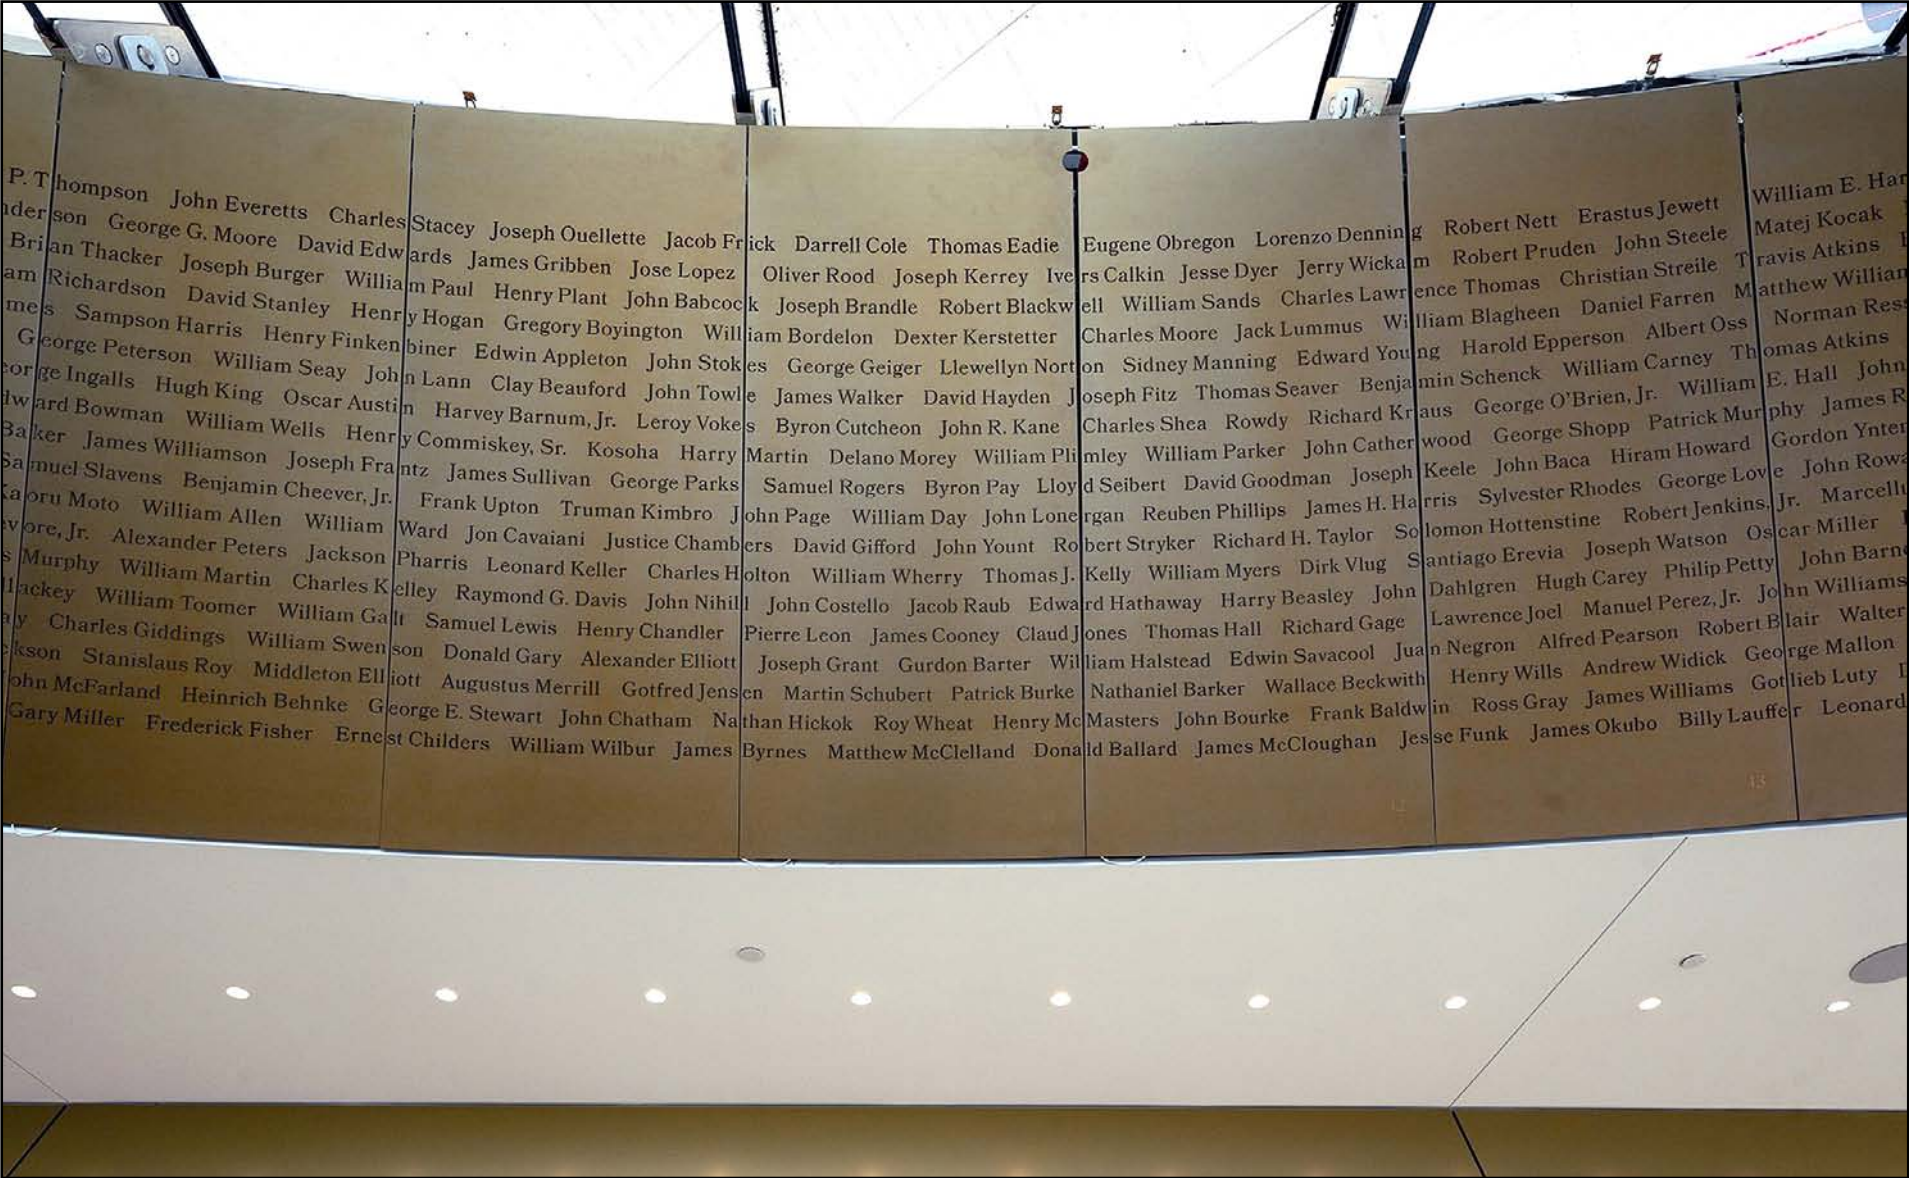 P. Thompson John Everetts Charles Stacey Joseph Ouellette Jacob Frick Darrell Cole Thomas Eadie Eugene Obregon Lorenzo Denning Robert Nett Erastus Jewett William E. Har
nderson George G. Moore David Edwards James Gribben Jose Lopez Oliver Rood Joseph Kerrey Ivers Calkin Jesse Dyer Jerry Wickam Robert Pruden John Steele Matej Kocak
Brian Thacker Joseph Burger William Paul Henry Plant John Babcock Joseph Brandle Robert Blackwell William Sands Charles Lawrence Thomas Christian Streile Travis Atkins
am Richardson David Stanley Henry Hogan Gregory Boyington William Bordelon Dexter Kerstetter Charles Moore Jack Lummus William Blagheen Daniel Farren Matthew William
mes Sampson Harris Henry Finkenbiner Edwin Appleton John Stokes George Geiger Llewellyn Norton Sidney Manning Edward Young Harold Epperson Albert Oss Norman Ress
George Peterson William Seay John Lann Clay Beauford John Towle James Walker David Hayden Joseph Fitz Thomas Seaver Benjamin Schenck William Carney Thomas Atkins
eorge Ingalls Hugh King Oscar Austin Harvey Barnum, Jr. Leroy Vokes Byron Cutcheon John R. Kane Charles Shea Rowdy Richard Kraus George O'Brien, Jr. William E. Hall John
dward Bowman William Wells Henry Commiskey, Sr. Kosoha Harry Martin Delano Morey William Plimley William Parker John Catherwood George Shopp Patrick Murphy James R
Baker James Williamson Joseph Frantz James Sullivan George Parks Samuel Rogers Byron Pay Lloyd Seibert David Goodman Joseph Keele John Baca Hiram Howard Gordon Ynten
Samuel Slavens Benjamin Cheever, Jr. Frank Upton Truman Kimbro John Page William Day John Lonergan Reuben Phillips James H. Harris Sylvester Rhodes George Love John Rowa
Kaoru Moto William Allen William Ward Jon Cavaiani Justice Chambers David Gifford John Yount Robert Stryker Richard H. Taylor Solomon Hottenstine Robert Jenkins, Jr. Marcellu
vore, Jr. Alexander Peters Jackson Pharris Leonard Keller Charles Holton William Wherry Thomas J. Kelly William Myers Dirk Vlug Santiago Erevia Joseph Watson Oscar Miller
s Murphy William Martin Charles Kelley Raymond G. Davis John Nihill John Costello Jacob Raub Edward Hathaway Harry Beasley John Dahlgren Hugh Carey Philip Petty John Barn
lackey William Toomer William Galt Samuel Lewis Henry Chandler Pierre Leon James Cooney Claud Jones Thomas Hall Richard Gage Lawrence Joel Manuel Perez, Jr. John Williams
ay Charles Giddings William Swenson Donald Gary Alexander Elliott Joseph Grant Gurdon Barter William Halstead Edwin Savacool Juan Negron Alfred Pearson Robert Blair Walter
kson Stanislaus Roy Middleton Elliott Augustus Merrill Gotfred Jensen Martin Schubert Patrick Burke Nathaniel Barker Wallace Beckwith Henry Wills Andrew Widick George Mallon
ohn McFarland Heinrich Behnke George E. Stewart John Chatham Nathan Hickok Roy Wheat Henry McMasters John Bourke Frank Baldwin Ross Gray James Williams Gotlieb Luty
Gary Miller Frederick Fisher Ernest Childers William Wilbur James Byrnes Matthew McClelland Donald Ballard James McCloughan Jesse Funk James Okubo Billy Lauffer Leonard
12 13